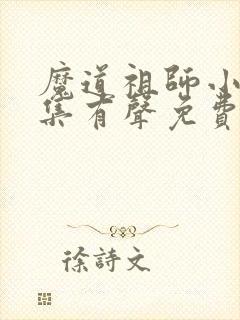 魔道祖師小
集有聲免費
徐詩文